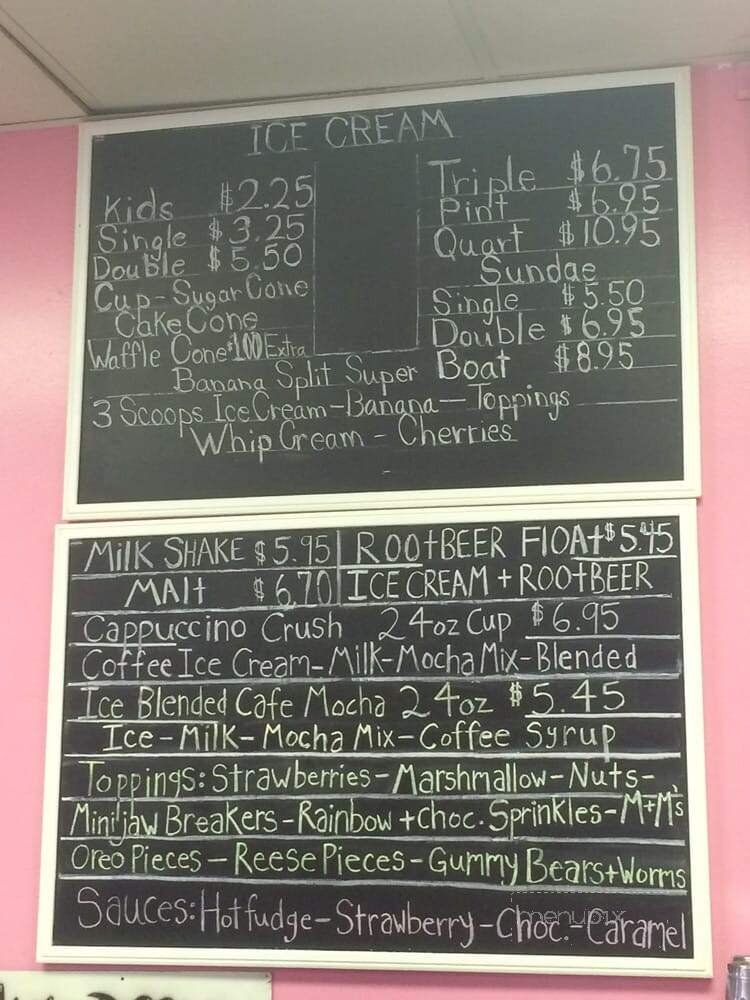 ICE CREAM
Kids $2.25
Single $3.25
Double $5.50
Cup-Sugar Cone
Cake Cone
Waffle Cone $1.00 Extra
Triple $6.75
Pint $6.95
Quart $10.95
Sundae
Single $5.50
Double $6.95
Boat $8.95
Banana Split Super
3 Scoops Ice Cream-Banana-Toppings
Whip Cream - Cherries
MilK SHAKE $5.95
MAlt $6.70
ROOtBEER FlOAt $5.45
ICE CREAM + ROOtBEER
Cappuccino Crush 24oz Cup $6.95
Coffee Ice Cream-Milk-Mocha Mix-Blended
Ice Blended Cafe Mocha 24oz $5.45
Ice-Milk-Mocha Mix-Coffee Syrup
Toppings: Strawberries-Marshmallow-Nuts-
Mini jaw Breakers-Rainbow + choc. Sprinkles-M+M's
Oreo Pieces-Reese Pieces-Gummy Bears+Worms
Sauces: Hot fudge-Strawberry-Choc.-Caramel
menupix